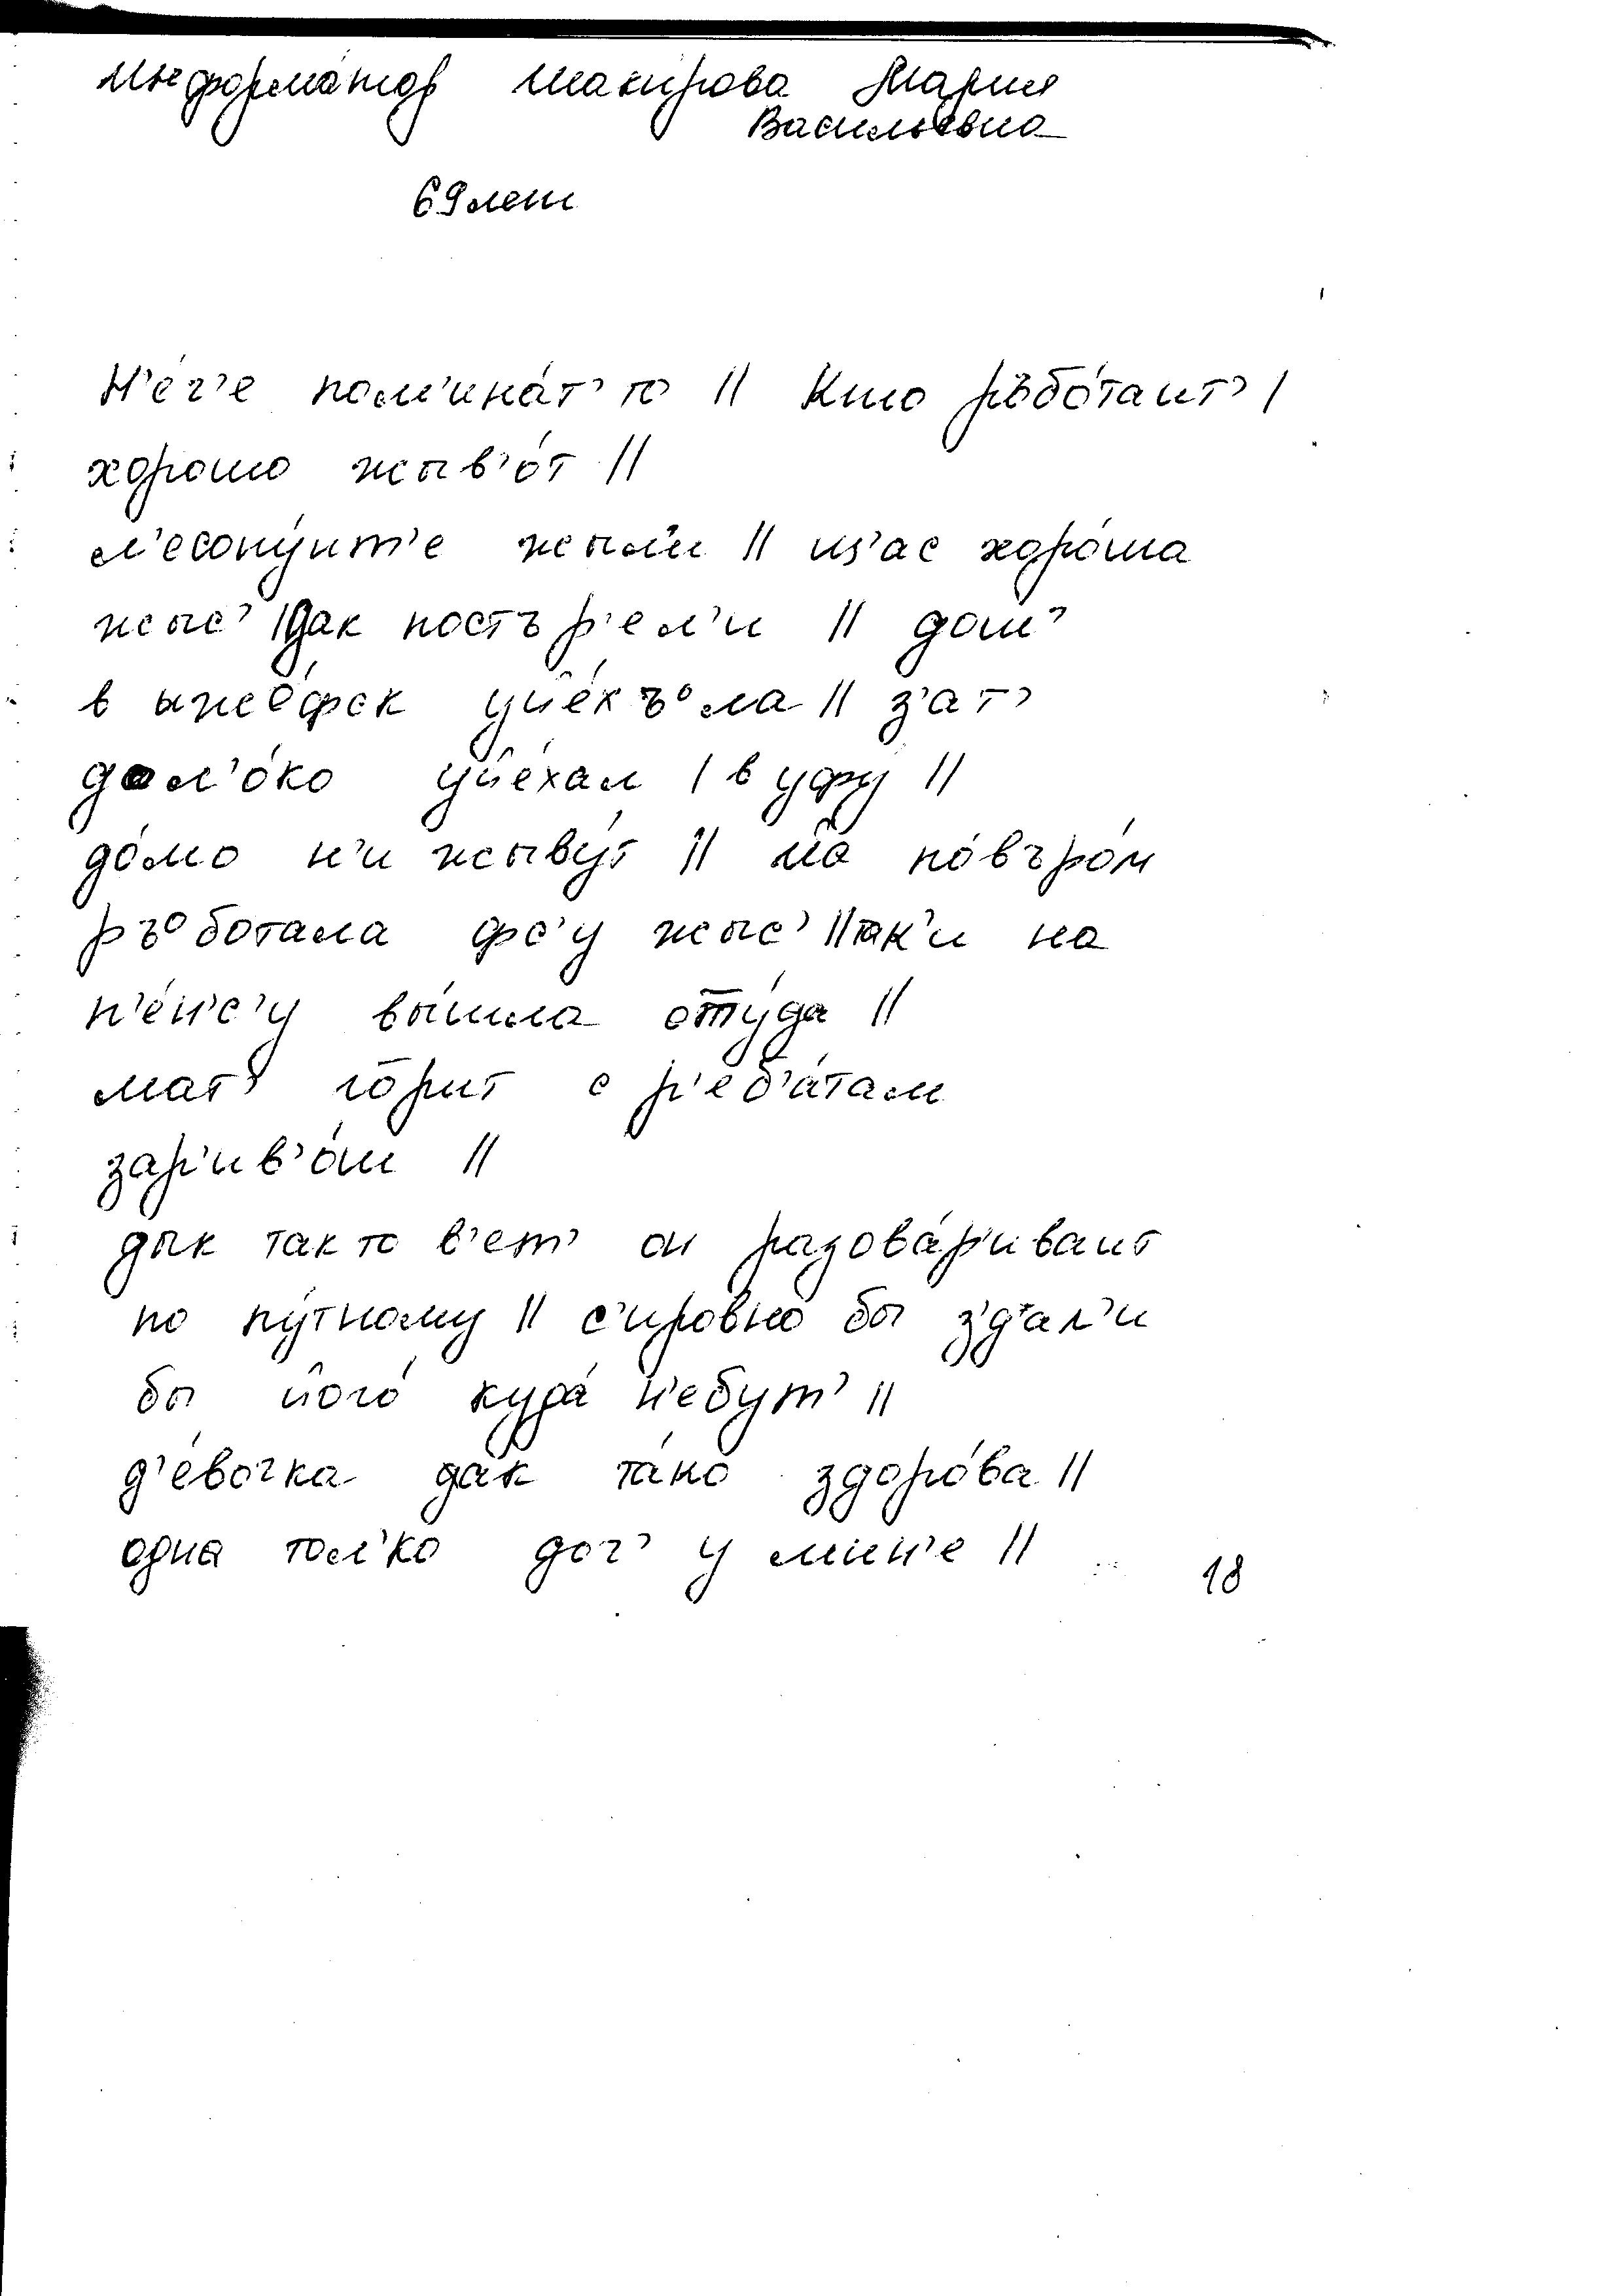 Информатор Шакирова Мария
Васильевна
69 лет
н'е́ч'е пом'ина́т' то || Кто ръбо́таит' |
хорошо жыв'о́т ||
л'есопу́нт'е жыли || ш'ас хоро́ша
жыс' | Дак постър'ел'и || доч'
в ыже́фск уйе́хъ°ла || з'ат'
дал'о́ко уйе́хал | в уфу ||
до́мо н'и жыву́т || йа по́въро́м
ръ°ботала фс'у жыс' || так'и на
п'е́н'с'у вы́шла отту́да ||
мат' го́рит с р'еб'а́там
зар'ив'о́ш ||
дык так то в'ет' он разова́р'иваит
по пу́тному || с'ировно́ бы з'д'ал'и
бы його́ куда́ н'ебут' ||
д'е́вочка дак та́ко здоро́ва ||
одна тол'ко доч' у мин'е ||
18